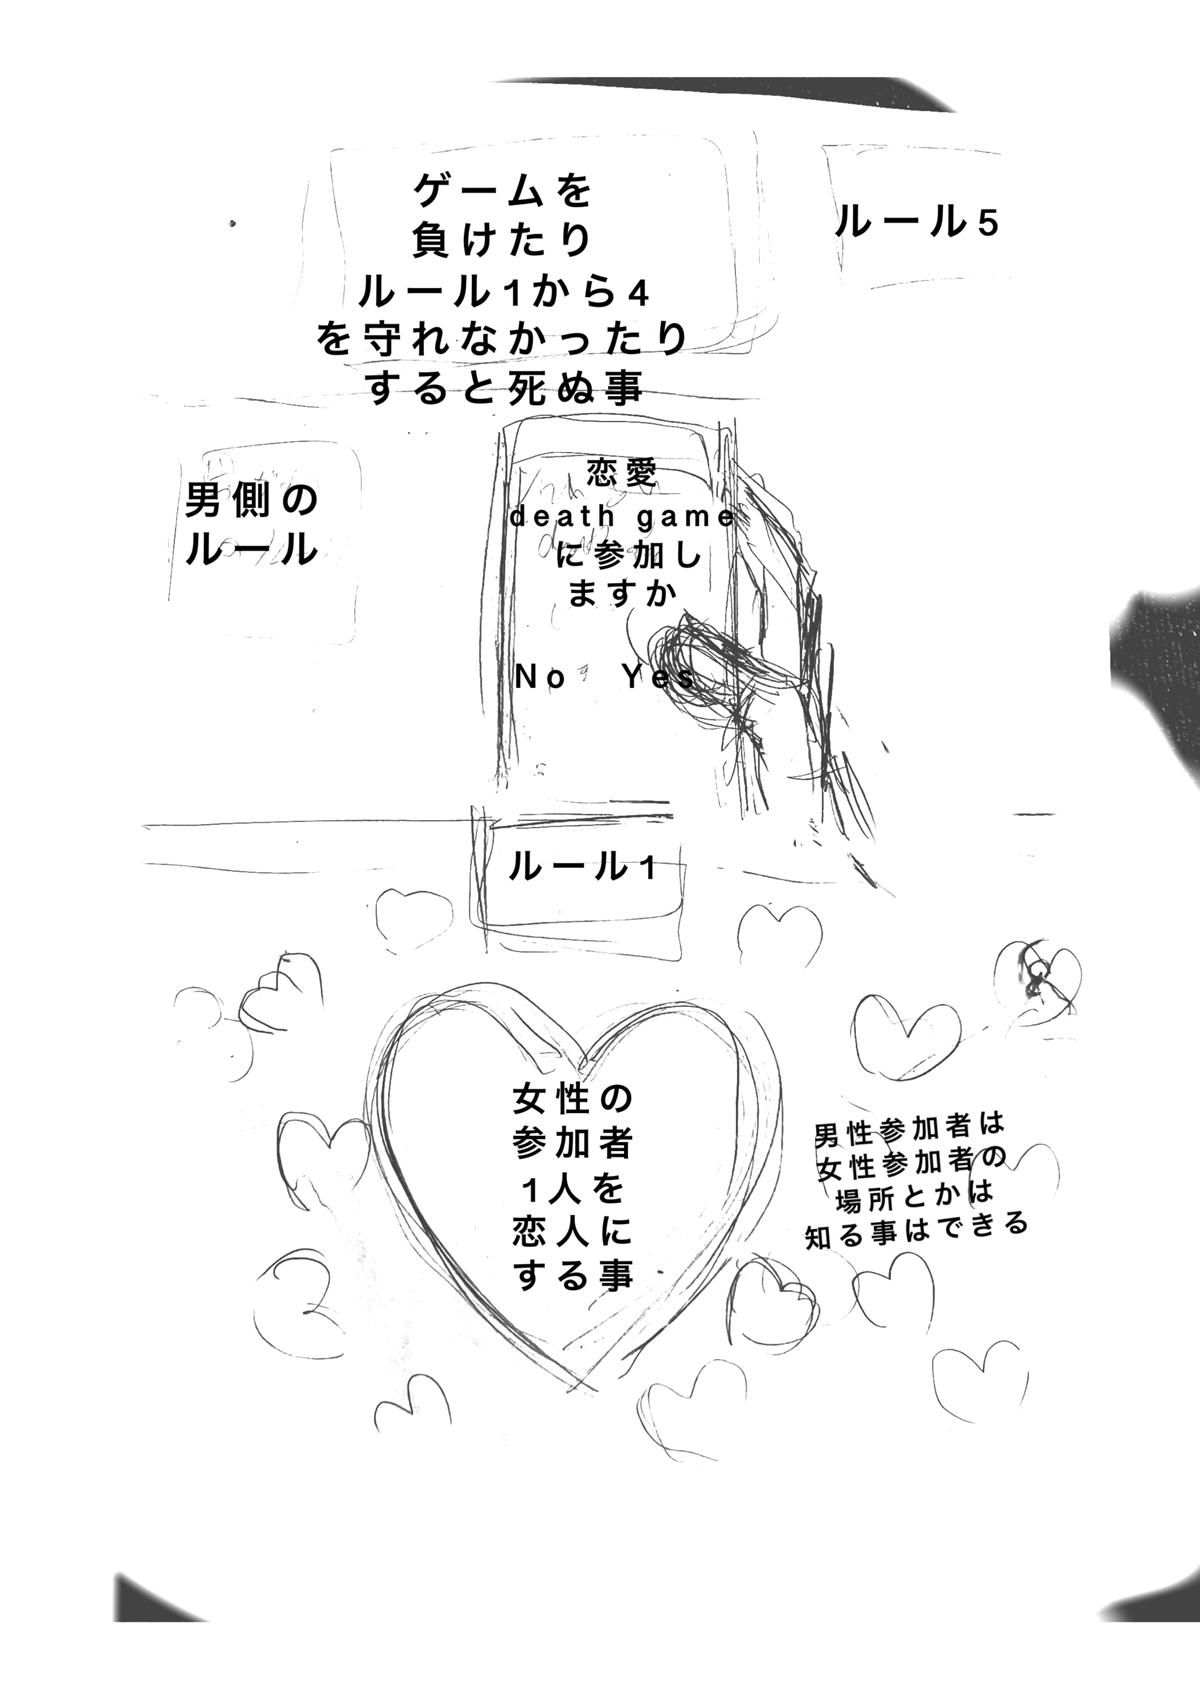 ルール5
ゲームを
負けたり
ルール1から4
を守れなかったり
すると死ぬ事
恋愛
death game
に参加し
ますか
No Yes
男側の
ルール
ルール1
女性の
参加者
1人を
恋人に
する事
男性参加者は
女性参加者の
場所とかは
知る事はできる